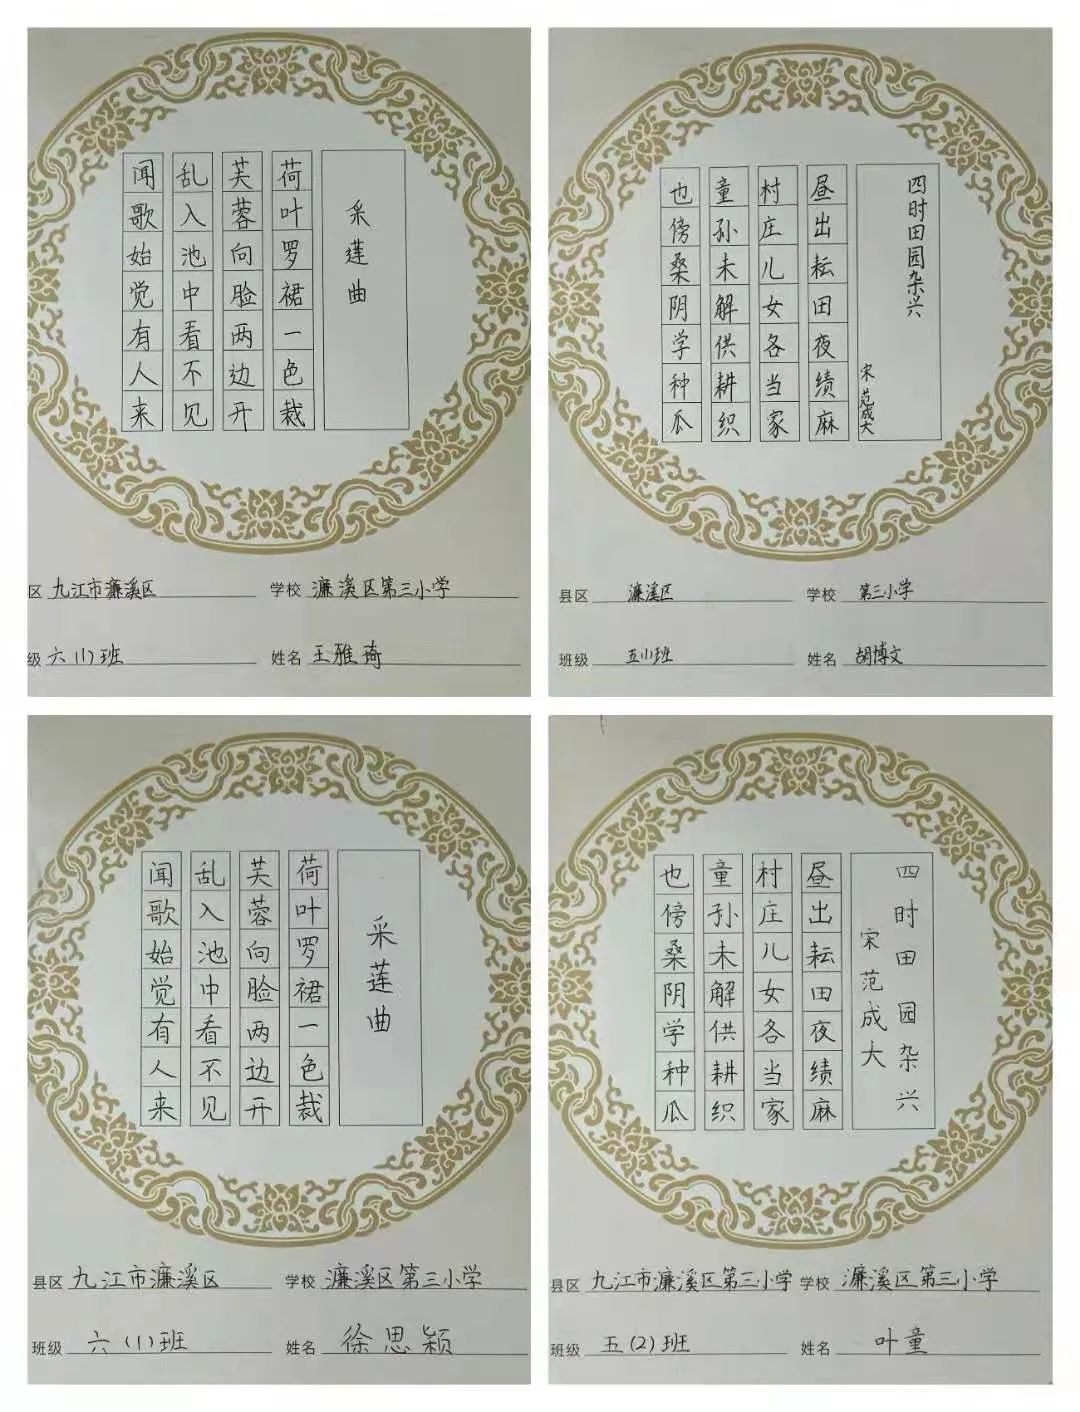 采莲曲
荷叶罗裙一色裁
芙蓉向脸两边开
乱入池中看不见
闻歌始觉有人来
区 九江市濂溪区 学校 濂溪区第三小学
级 六(1)班 姓名 王雅琦
四时田园杂兴
宋 范成大
昼出耘田夜绩麻
村庄儿女各当家
童孙未解供耕织
也傍桑阴学种瓜
县区 濂溪区 学校 第三小学
班级 五(1)班 姓名 胡博文
采莲曲
荷叶罗裙一色裁
芙蓉向脸两边开
乱入池中看不见
闻歌始觉有人来
县区 九江市濂溪区 学校 濂溪区第三小学
班级 六(1)班 姓名 徐思颖
四时田园杂兴
宋范成大
昼出耘田夜绩麻
村庄儿女各当家
童孙未解供耕织
也傍桑阴学种瓜
县区 九江市濂溪区第三小学 学校 濂溪区第三小学
班级 五(2)班 姓名 叶童